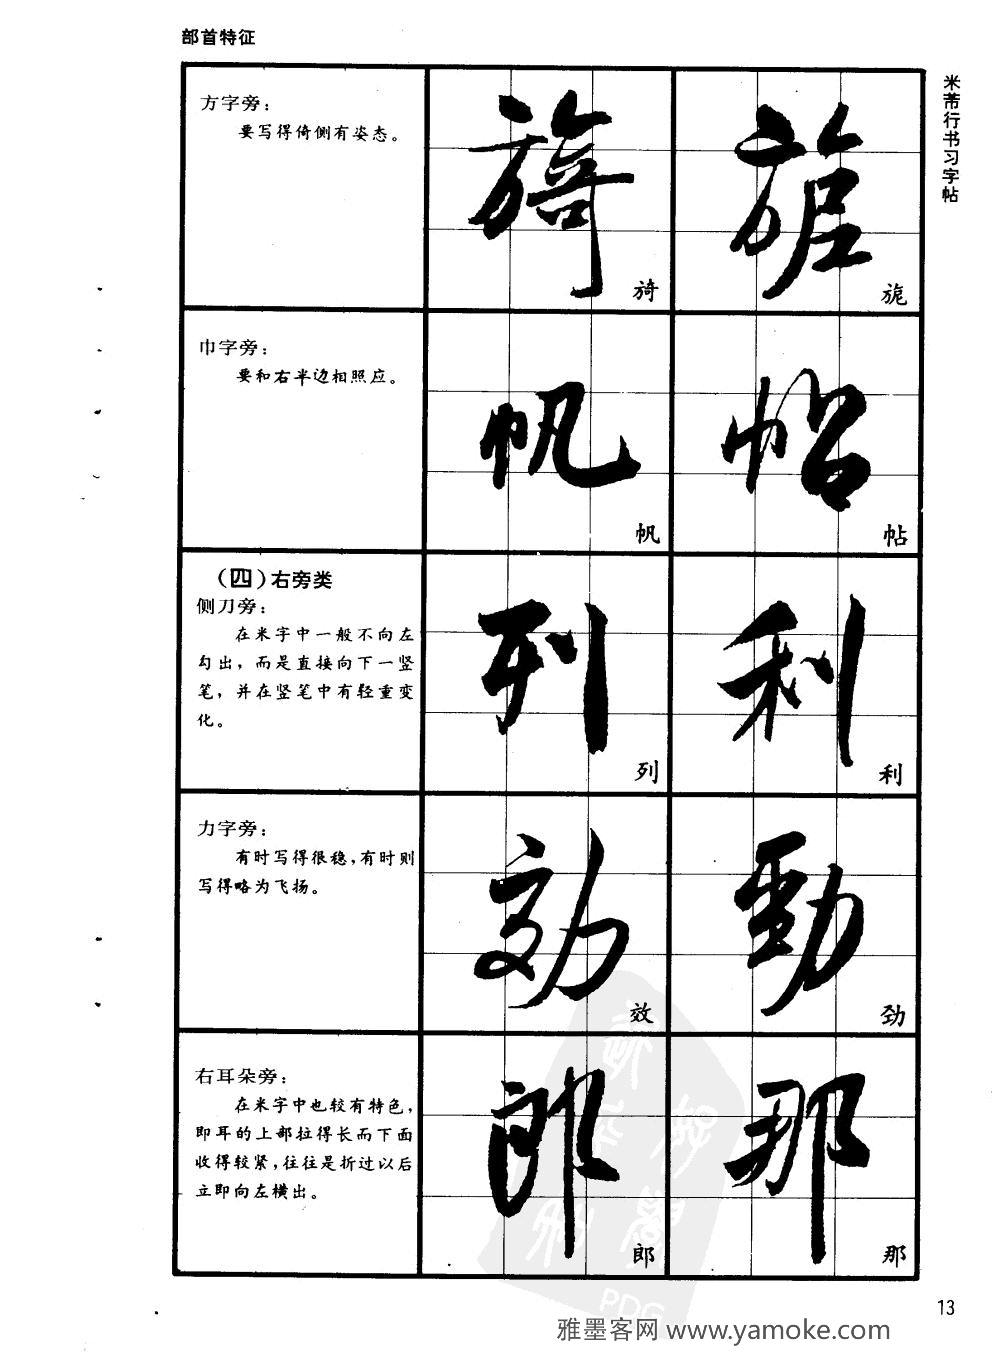 部首特征
米芾行书习字帖
方字旁：
要写得倚侧有姿态。
旖
旎
巾字旁：
要和右半边相照应。
帆
帖
（四）右旁类
侧刀旁：
在米字中一般不向左
勾出，而是直接向下一竖
笔，并在竖笔中有轻重变
化。
列
利
力字旁：
有时写得很稳，有时则
写得略为飞扬。
效
劲
右耳朵旁：
在米字中也较有特色，
即耳的上部拉得长而下面
收得较紧，往往是折过以后
立即向左横出。
郎
那
13
PDG
雅墨客网 www.yamoke.com